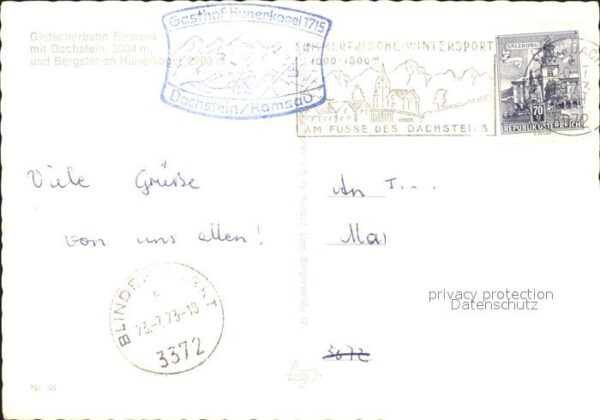 Gletscherbahn Ramsau
mit Dachstein, 3004 m
und Bergstation Hunerkogel 2700 m
Gasthof Hunerkogel 1715
Dachstein/Ramsau
SOMMERFRISCHE-WINTERSPORT
1000-1800 m
AM FUSSE DES DACHSTEINS
SALZBURG
70
REPUBLIK ÖSTERREICH
8972
Viele Grüße
von uns allen!
An T...
Mar
privacy protection
Datenschutz
BLINDENMARKT
23.-7.73-18
3372
3672
Nr. 46